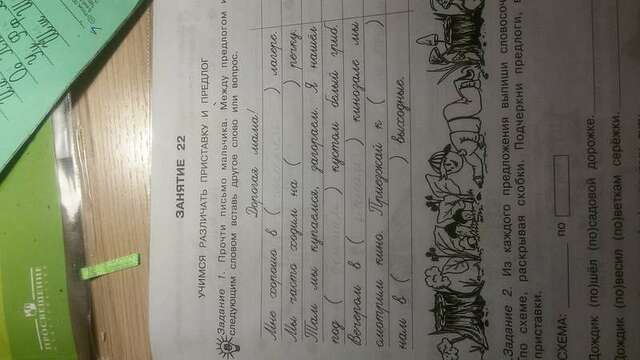 ЗАНЯТИЕ 22
УЧИМСЯ РАЗЛИЧАТЬ ПРИСТАВКУ И ПРЕДЛОГ
Задание 1. Прочти письмо мальчика. Между предлогом и
следующим словом вставь другое слово или вопрос.
Дорогая мама!
Мне хорошо в ( ) лагере.
Мы часто ходим на ( ) речку.
Там мы купаемся, загораем. Я нашёл
под ( ) кустом белый гриб.
Вечером в ( ) кинозале мы
смотрим кино. Приезжай к (
нам в ( ) выходные.
Задание 2. Из каждого предложения выпиши словосоч
по схеме, раскрывая скобки. Подчеркни предлоги, в
приставки.
СХЕМА: по
Дождик (по)шёл (по)садовой дорожке.
Дождик (по)весил (по)веткам серёжки.
ПРОСВЕЩЕНИЕ